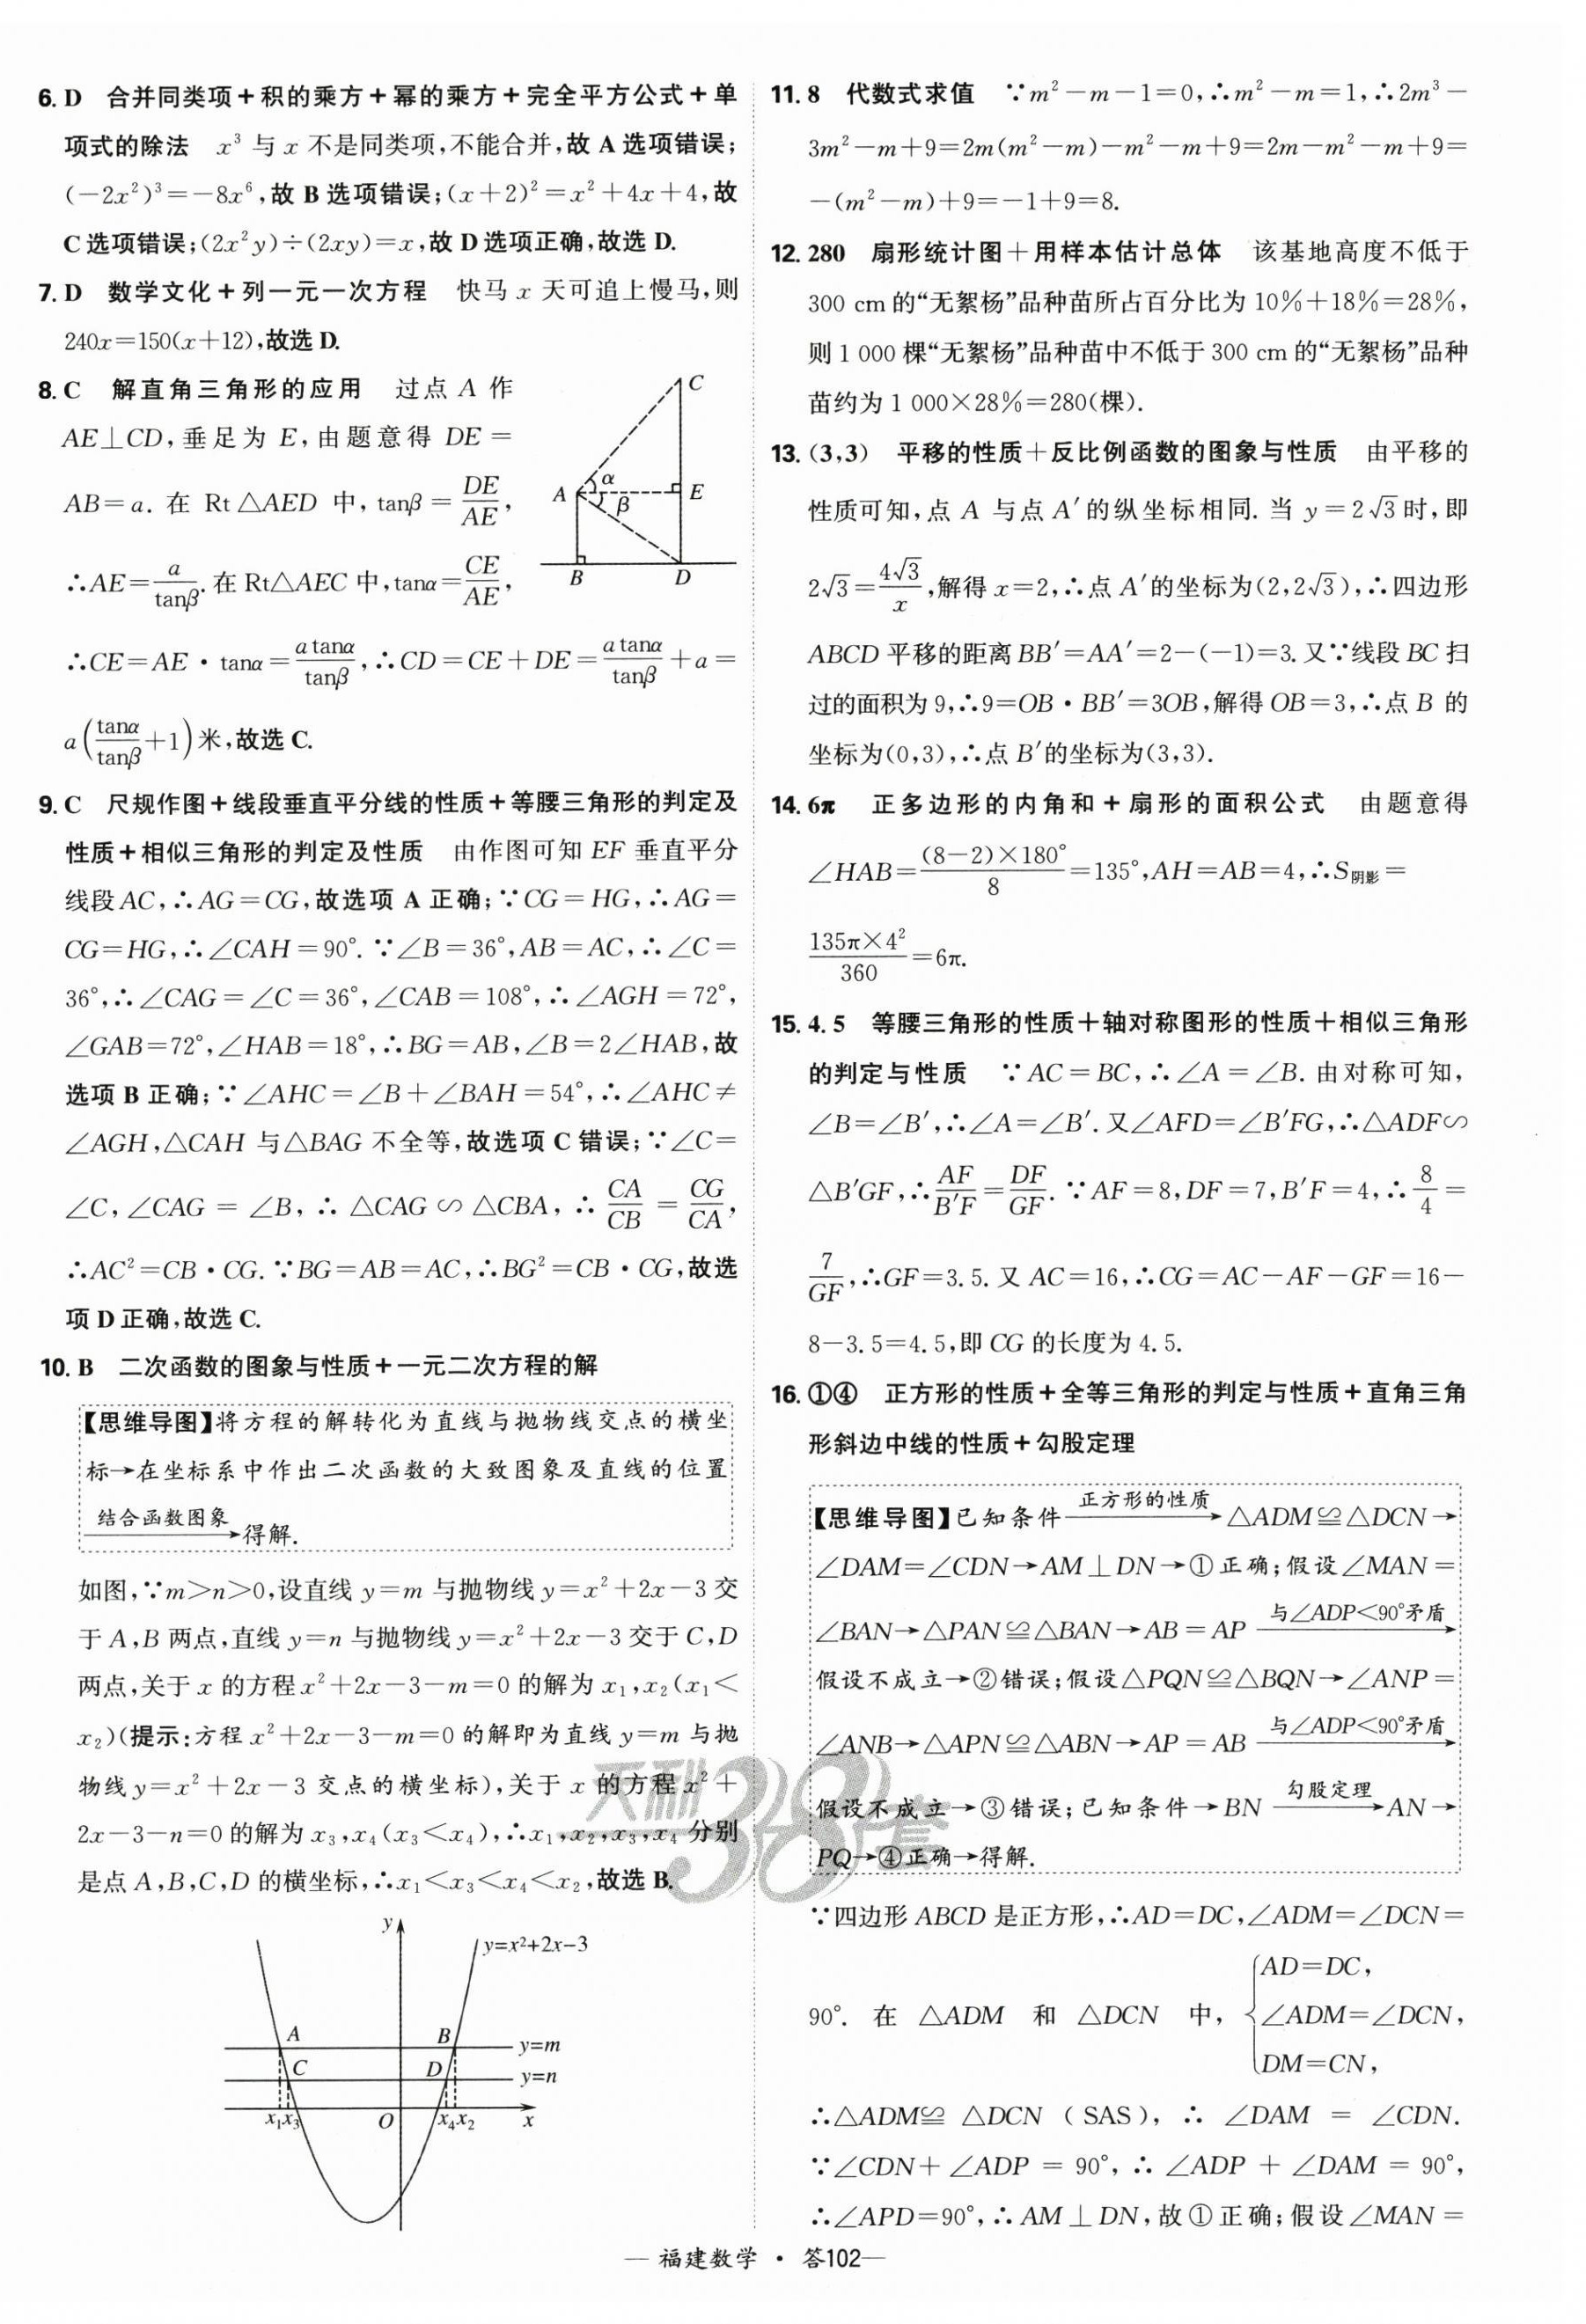 6. D 合并同类项+积的乘方+幂的乘方+完全平方公式+单
项式的除法 x³ 与 x 不是同类项,不能合并,故 A 选项错误;
(-2x²)³=-8x⁶,故 B 选项错误;(x+2)²=x²+4x+4,故
C选项错误;(2x²y)÷(2xy)=x,故 D 选项正确,故选 D.
7. D 数学文化+列一元一次方程 快马 x 天可追上慢马,则
240x=150(x+12),故选 D.
8. C 解直角三角形的应用 过点 A 作
AE⊥CD,垂足为 E,由题意得 DE=
AB=a. 在 Rt△AED 中,tanβ=DE/AE,
∴AE=a/tanβ. 在Rt△AEC 中,tanα=CE/AE,
∴CE=AE·tanα=a tanα/tanβ,∴CD=CE+DE=a tanα/tanβ+a=
a(tanα/tanβ+1)米,故选 C.
C
A α E
β
B D
9. C 尺规作图+线段垂直平分线的性质+等腰三角形的判定及
性质+相似三角形的判定及性质 由作图可知 EF 垂直平分
线段AC,∴AG=CG,故选项 A 正确;∵CG=HG,∴AG=
CG=HG,∴∠CAH=90°.∵∠B=36°,AB=AC,∴∠C=
36°,∴∠CAG=∠C=36°,∠CAB=108°,∴∠AGH=72°,
∠GAB=72°,∠HAB=18°,∴BG=AB,∠B=2∠HAB,故
选项 B 正确;∵∠AHC=∠B+∠BAH=54°,∴∠AHC≠
∠AGH,△CAH 与△BAG 不全等,故选项 C 错误;∵∠C=
∠C,∠CAG=∠B,∴△CAG∽△CBA,∴CA/CB=CG/CA,
∴AC²=CB·CG.∵BG=AB=AC,∴BG²=CB·CG,故选
项 D 正确,故选 C.
10. B 二次函数的图象与性质+一元二次方程的解
【思维导图】将方程的解转化为直线与抛物线交点的横坐
标→在坐标系中作出二次函数的大致图象及直线的位置
结合函数图象→得解.
如图,∵m>n>0,设直线 y=m 与抛物线 y=x²+2x-3 交
于 A,B 两点,直线 y=n 与抛物线 y=x²+2x-3 交于 C,D
两点,关于 x 的方程x²+2x-3-m=0 的解为 x₁,x₂(x₁<
x₂)(提示:方程 x²+2x-3-m=0 的解即为直线 y=m 与抛
物线 y=x²+2x-3 交点的横坐标),关于 x 的方程 x²+
2x-3-n=0 的解为 x₃,x₄(x₃<x₄),∴x₁,x₂,x₃,x₄ 分别
是点 A,B,C,D 的横坐标,∴x₁<x₃<x₄<x₂,故选 B.
y
y=x²+2x-3
A B y=m
C D y=n
x₁x₃ O x₄x₂ x
11. 8 代数式求值 ∵m²-m-1=0,∴m²-m=1,∴2m³-
3m²-m+9=2m(m²-m)-m²-m+9=2m-m²-m+9=
-(m²-m)+9=-1+9=8.
12. 280 扇形统计图+用样本估计总体 该基地高度不低于
300 cm 的“无絮杨”品种苗所占百分比为 10%+18%=28%,
则 1 000 棵“无絮杨”品种苗中不低于 300 cm 的“无絮杨”品种
苗约为 1 000×28%=280(棵).
13. (3,3) 平移的性质+反比例函数的图象与性质 由平移的
性质可知,点 A 与点 A′的纵坐标相同. 当 y=2√3时,即
2√3=4√3/x,解得 x=2,∴点 A′的坐标为(2,2√3),∴四边形
ABCD 平移的距离 BB′=AA′=2-(-1)=3. 又∵线段 BC 扫
过的面积为 9,∴9=OB·BB′=3OB,解得 OB=3,∴点 B 的
坐标为(0,3),∴点 B′的坐标为(3,3).
14. 6π 正多边形的内角和+扇形的面积公式 由题意得
∠HAB=(8-2)×180°/8=135°,AH=AB=4,∴S阴影=
135π×4²/360=6π.
15. 4.5 等腰三角形的性质+轴对称图形的性质+相似三角形
的判定与性质 ∵AC=BC,∴∠A=∠B. 由对称可知,
∠B=∠B′,∴∠A=∠B′. 又∠AFD=∠B′FG,∴△ADF∽
△B′GF,∴AF/B′F=DF/GF.∵AF=8,DF=7,B′F=4,∴8/4=
7/GF,∴GF=3.5. 又 AC=16,∴CG=AC-AF-GF=16-
8-3.5=4.5,即 CG 的长度为 4.5.
16. ①④ 正方形的性质+全等三角形的判定与性质+直角三角
形斜边中线的性质+勾股定理
【思维导图】已知条件 正方形的性质→△ADM≌△DCN→
∠DAM=∠CDN→AM⊥DN→①正确;假设∠MAN=
∠BAN→△PAN≌△BAN→AB=AP 与∠ADP<90°矛盾→
假设不成立→②错误;假设△PQN≌△BQN→∠ANP=
∠ANB→△APN≌△ABN→AP=AB 与∠ADP<90°矛盾→
假设不成立→③错误;已知条件→BN 勾股定理→AN→
PQ→④正确→得解.
∵四边形 ABCD 是正方形,∴AD=DC,∠ADM=∠DCN=
90°. 在 △ADM 和 △DCN 中,{AD=DC,
∠ADM=∠DCN,
DM=CN,
∴△ADM≌△DCN(SAS),∴∠DAM=∠CDN.
∵∠CDN+∠ADP=90°,∴∠ADP+∠DAM=90°,
∴∠APD=90°,∴AM⊥DN,故①正确;假设∠MAN=
天利38套
— 福建数学·答102—